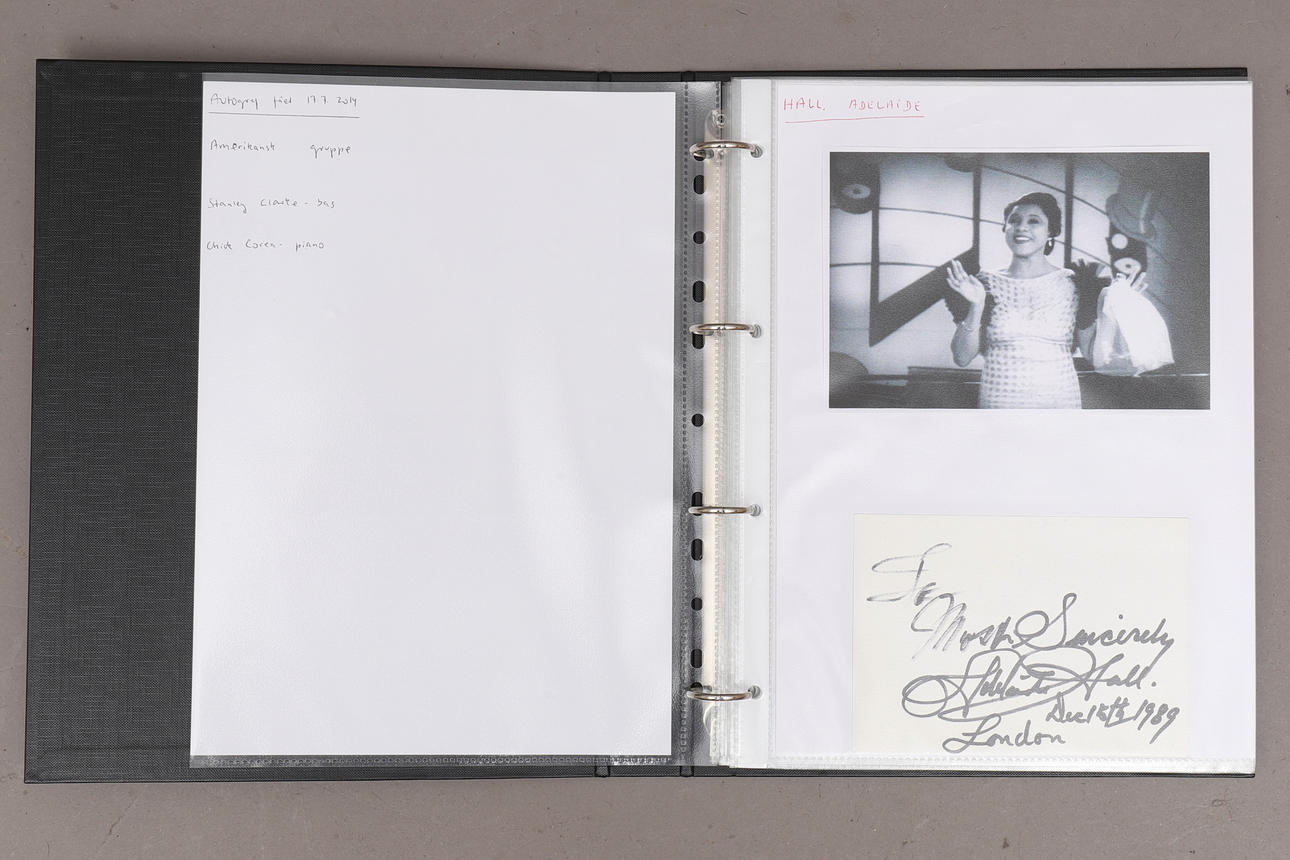 Autograf fået 17.7. 2014
Amerikansk gruppe
Stanley Clarke - bas
Chick Corea - piano
HALL, ADELAIDE
To
Most Sincerely
Adelaide Hall.
Dec 15th 1989
London